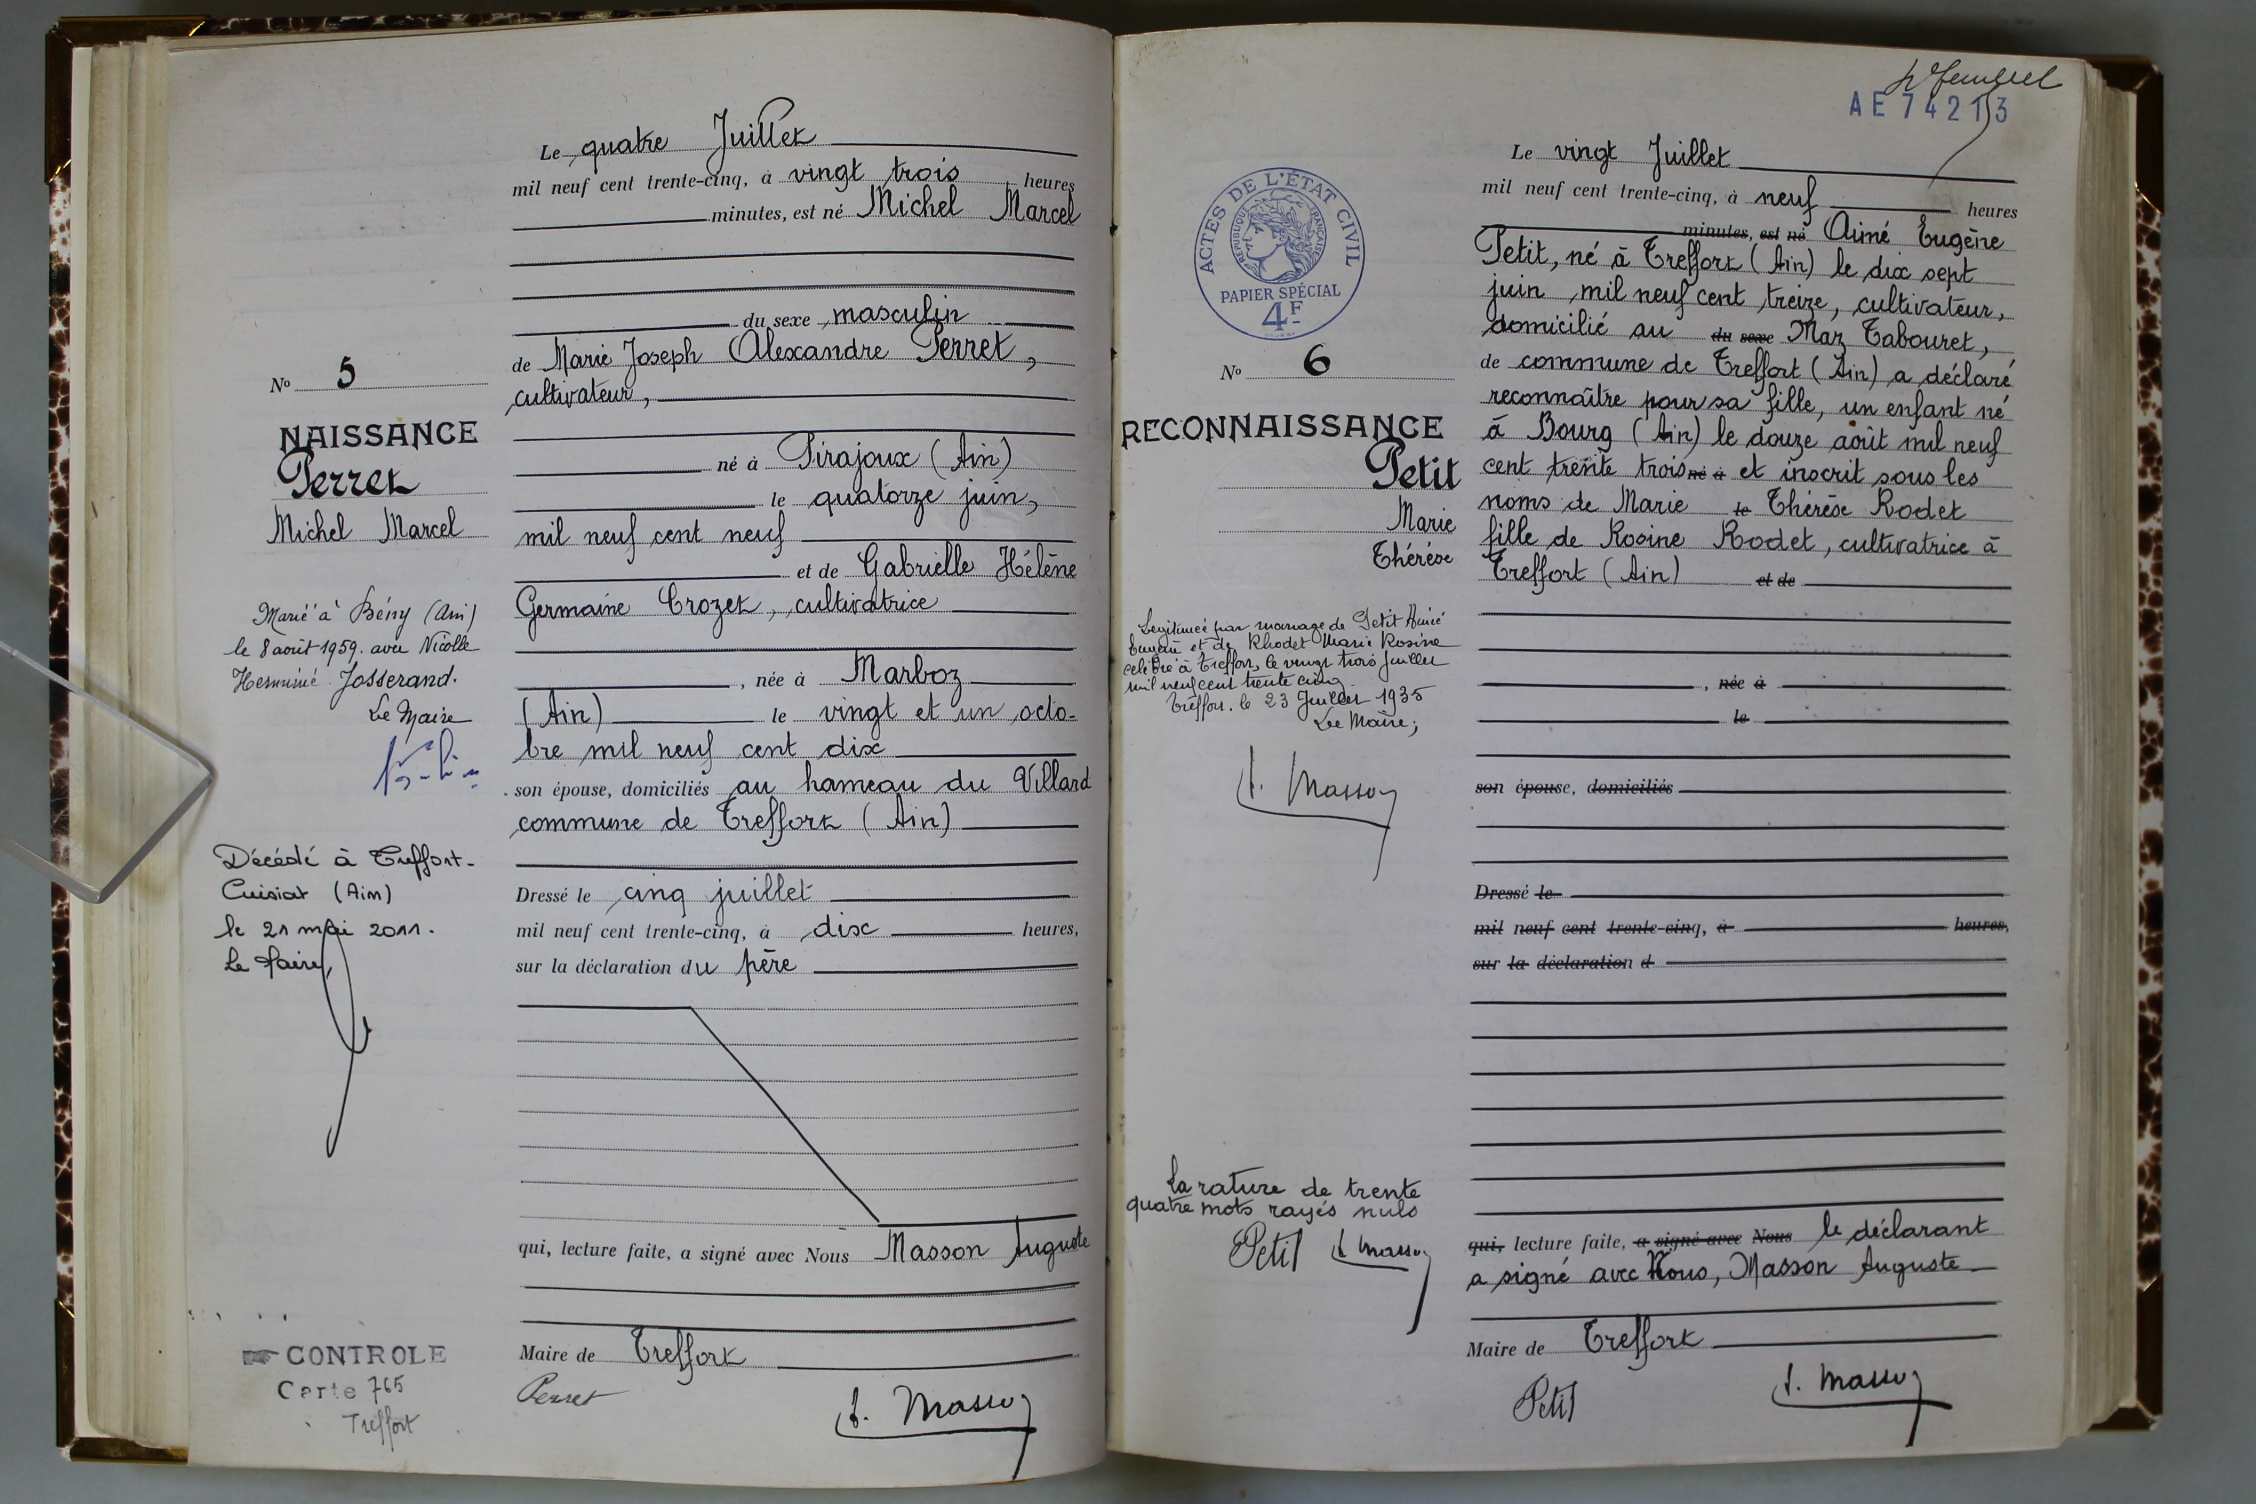 Le quatre Juillet
mil neuf cent trente-cinq, à vingt trois heures
minutes, est né Michel Marcel
du sexe masculin
de Marie Joseph Alexandre Perret,
cultivateur,
né à Pirajoux (Ain)
le quatorze juin,
mil neuf cent neuf
et de Gabrielle Hélène
Germaine Crozet, cultivatrice
, née à Marboz
(Ain) le vingt et un octo-
bre mil neuf cent dix
son épouse, domiciliés au hameau du Villard
commune de Treffort (Ain)
Dressé le cinq juillet
mil neuf cent trente-cinq, à dix heures,
sur la déclaration du père
qui, lecture faite, a signé avec Nous Masson Auguste
Maire de Treffort
Perret
A. Masson
No 5
NAISSANCE
Perret
Michel Marcel
Marié à Bény (Ain)
le 8 août 1959. avec Nicolle
Herminie Josserand.
Le Maire
Décédé à Treffort-
Cuisiat (Ain)
le 21 mai 2011.
Le Maire,
CONTROLE
Carte 765
Treffort
AE 74213
Le vingt Juillet
mil neuf cent trente-cinq, à neuf heures
minutes, est né Aimé Eugène
Petit, né à Treffort (Ain) le dix sept
juin mil neuf cent treize, cultivateur,
domicilié au du sexe Maz Tabouret,
de commune de Treffort (Ain) a déclaré
reconnaître pour sa fille, un enfant né
à Bourg (Ain) le douze août mil neuf
cent trente trois né à et inscrit sous les
noms de Marie le Thérèse Rodet
fille de Rosine Rodet, cultivatrice à
Treffort (Ain) et de
, née à
le
son épouse, domiciliés
Dressé le
mil neuf cent trente-cinq, à heures,
sur la déclaration d
qui, lecture faite, a signé avec Nous le déclarant
a signé avec Nous, Masson Auguste
Maire de Treffort
Petit
A. Masson
ACTES DE L'ÉTAT CIVIL
RÉPUBLIQUE FRANÇAISE
PAPIER SPÉCIAL
4F
No 6
RECONNAISSANCE
Petit
Marie
Thérèse
Légitimée par mariage de Petit Aimé
Eugène et de Rhodet Marie Rosine
célébré à Treffort, le vingt trois Juillet
mil neuf cent trente cinq
Treffort. le 23 Juillet 1935
Le Maire;
A. Masson
La rature de trente
quatre mots rayés nuls
Petit A. Masson